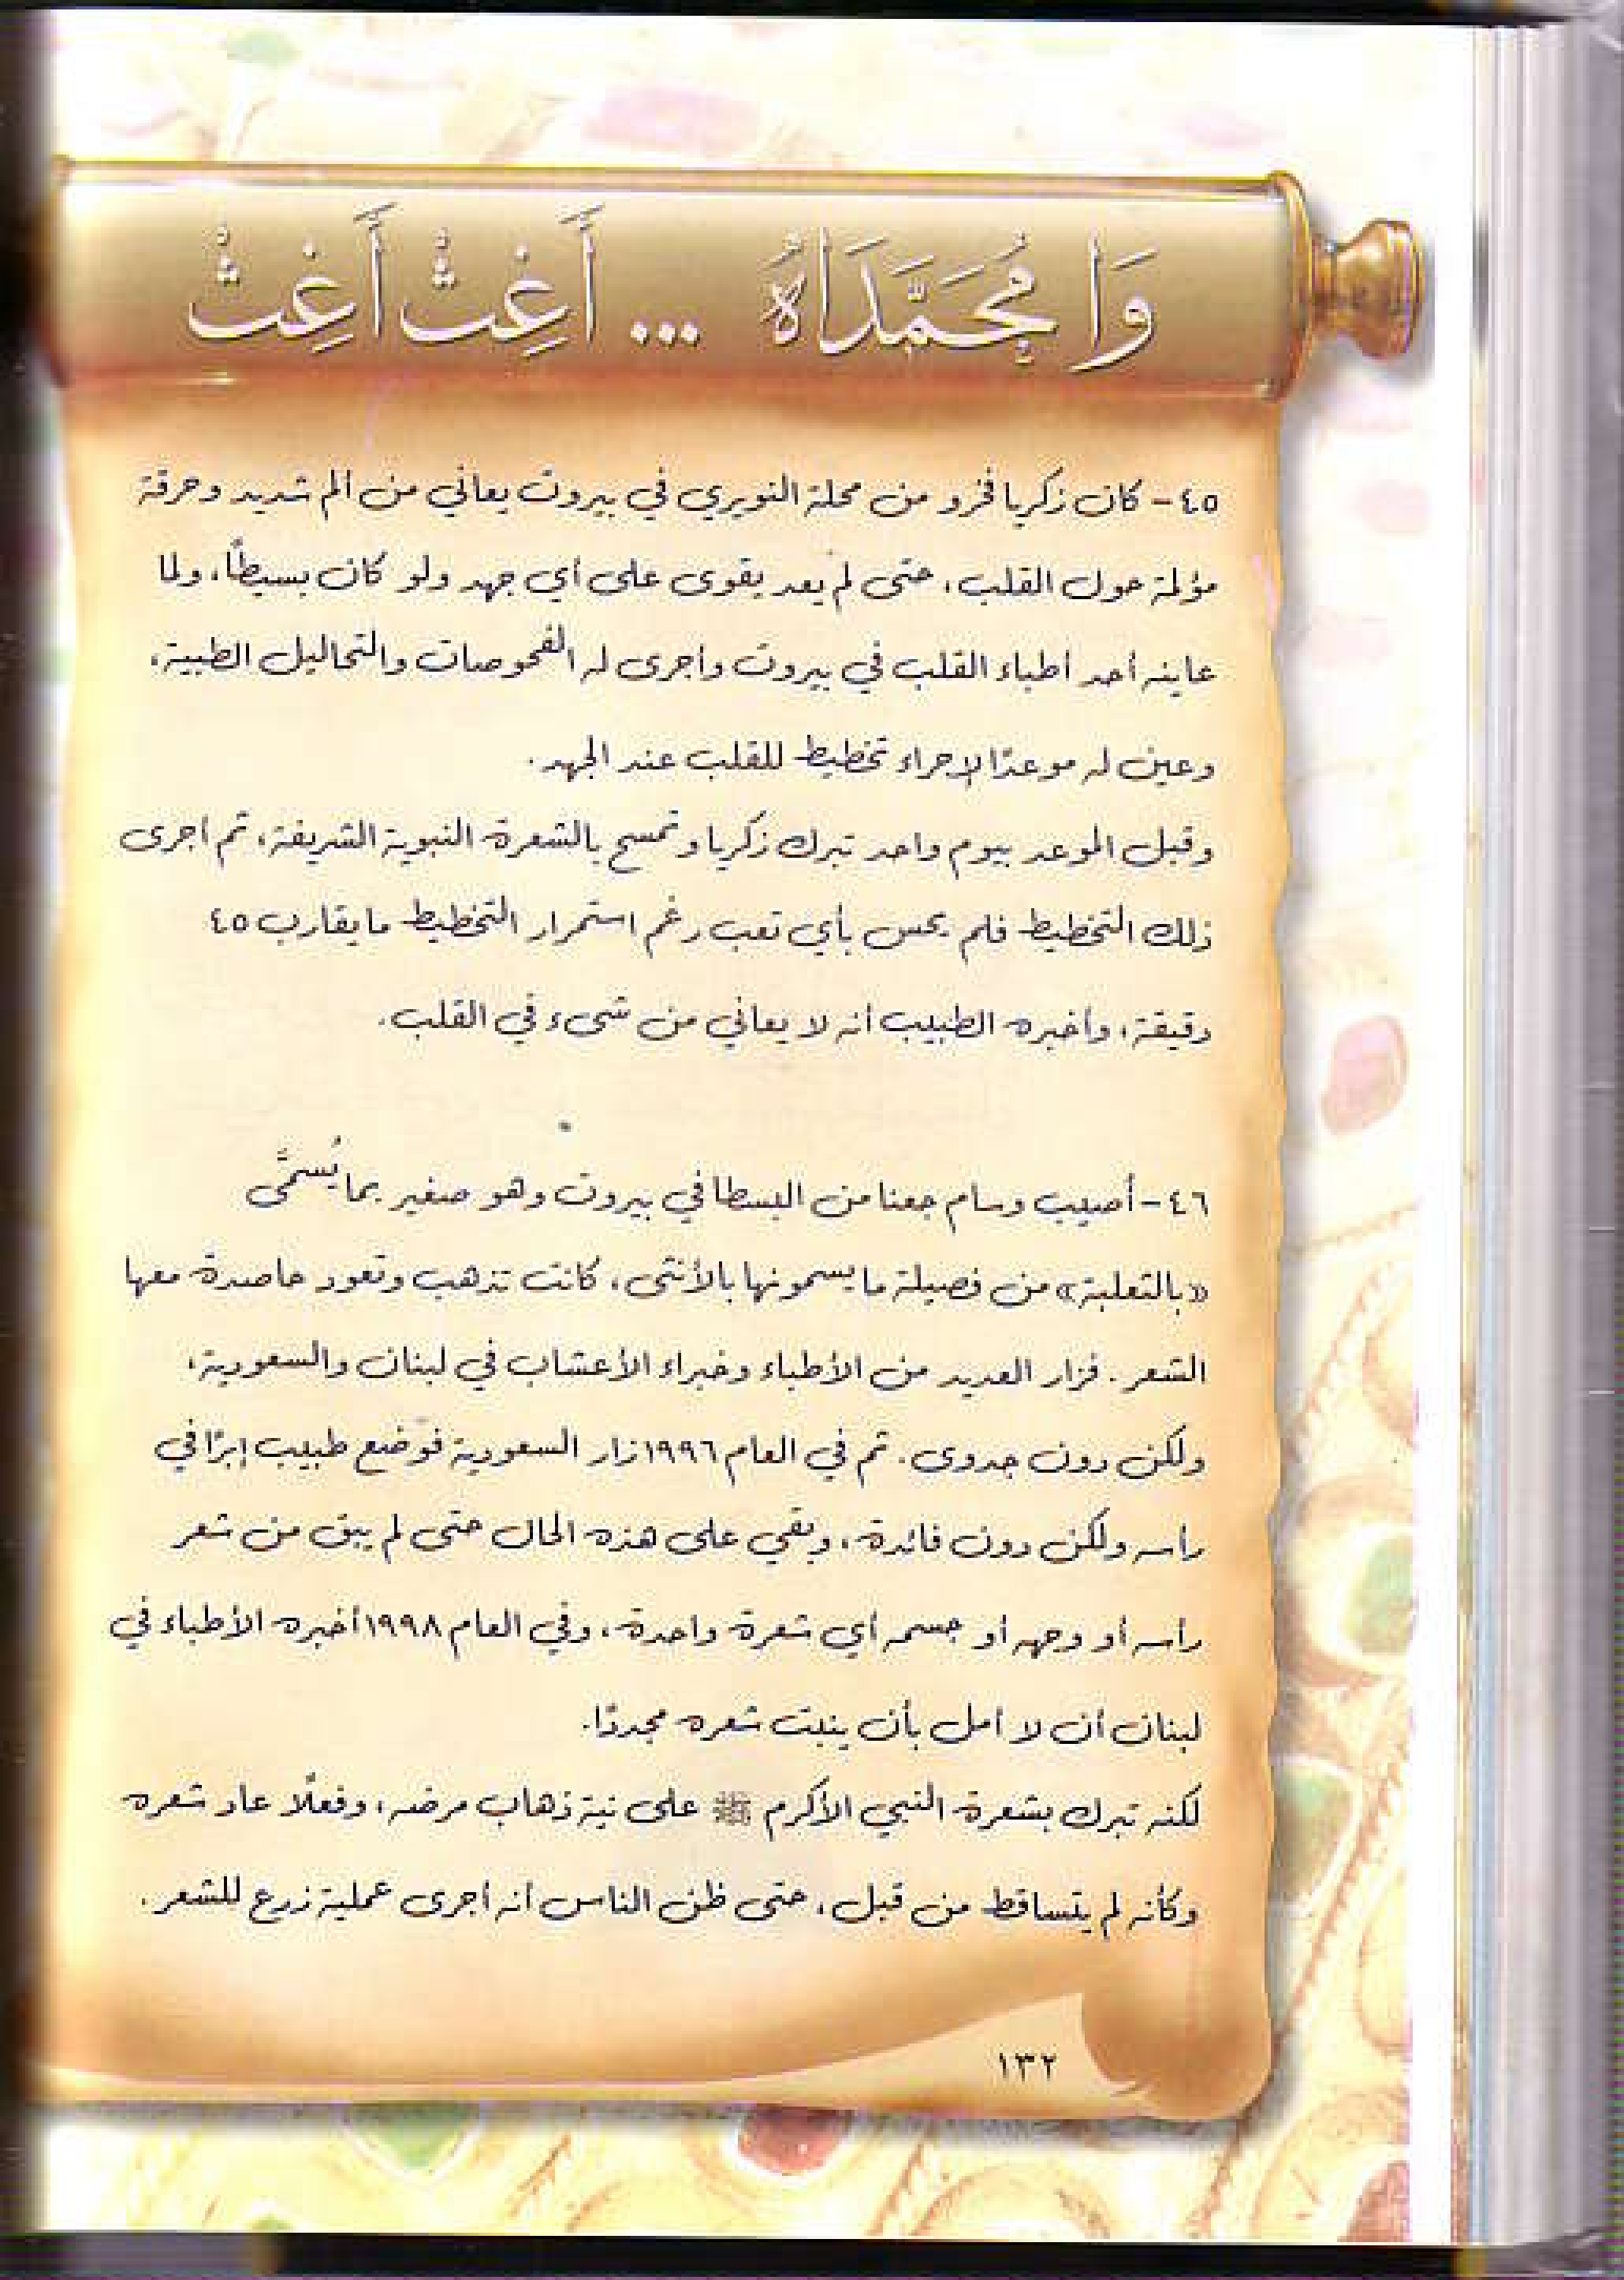 وَا مُحَمَّدَاهُ ... أَغِثْ أَغِثْ
٤٥- كان زكريا فخرو من محلة النويري في بيروت يعاني من ألم شديد وحرقة
مؤلمة حول القلب، حتى لم يعد يقوى على أي جهد ولو كان بسيطًا، ولما
عاينه أحد أطباء القلب في بيروت وأجرى له الفحوصات والتحاليل الطبية،
وعين له موعدًا لإجراء تخطيط للقلب عند الجهد.
وقبل الموعد بيوم واحد تبرك زكريا وتمسح بالشعرة النبوية الشريفة، ثم أجرى
ذلك التخطيط فلم يحس بأي تعب رغم استمرار التخطيط ما يقارب ٤٥
دقيقة، وأخبره الطبيب أنه لا يعاني من شيء في القلب.
٤٦- أصيب وسام جعنا من البسطا في بيروت وهو صغير بما يُسمَّى
«بالثعلبة» من فصيلة ما يسمونها بالأنثى، كانت تذهب وتعود حاصدة معها
الشعر. فزار العديد من الأطباء وخبراء الأعشاب في لبنان والسعودية،
ولكن دون جدوى. ثم في العام ١٩٩٦ زار السعودية فوضع طبيب إبرًا في
رأسه ولكن دون فائدة، وبقي على هذه الحال حتى لم يبق من شعر
رأسه أو وجهه أو جسمه أي شعرة واحدة، وفي العام ١٩٩٨ أخبره الأطباء في
لبنان أن لا أمل بأن ينبت شعره مجددًا.
لكنه تبرك بشعرة النبي الأكرم ﷺ على نية ذهاب مرضه، وفعلًا عاد شعره
وكأنه لم يتساقط من قبل، حتى ظن الناس أنه أجرى عملية زرع للشعر.
١٣٢